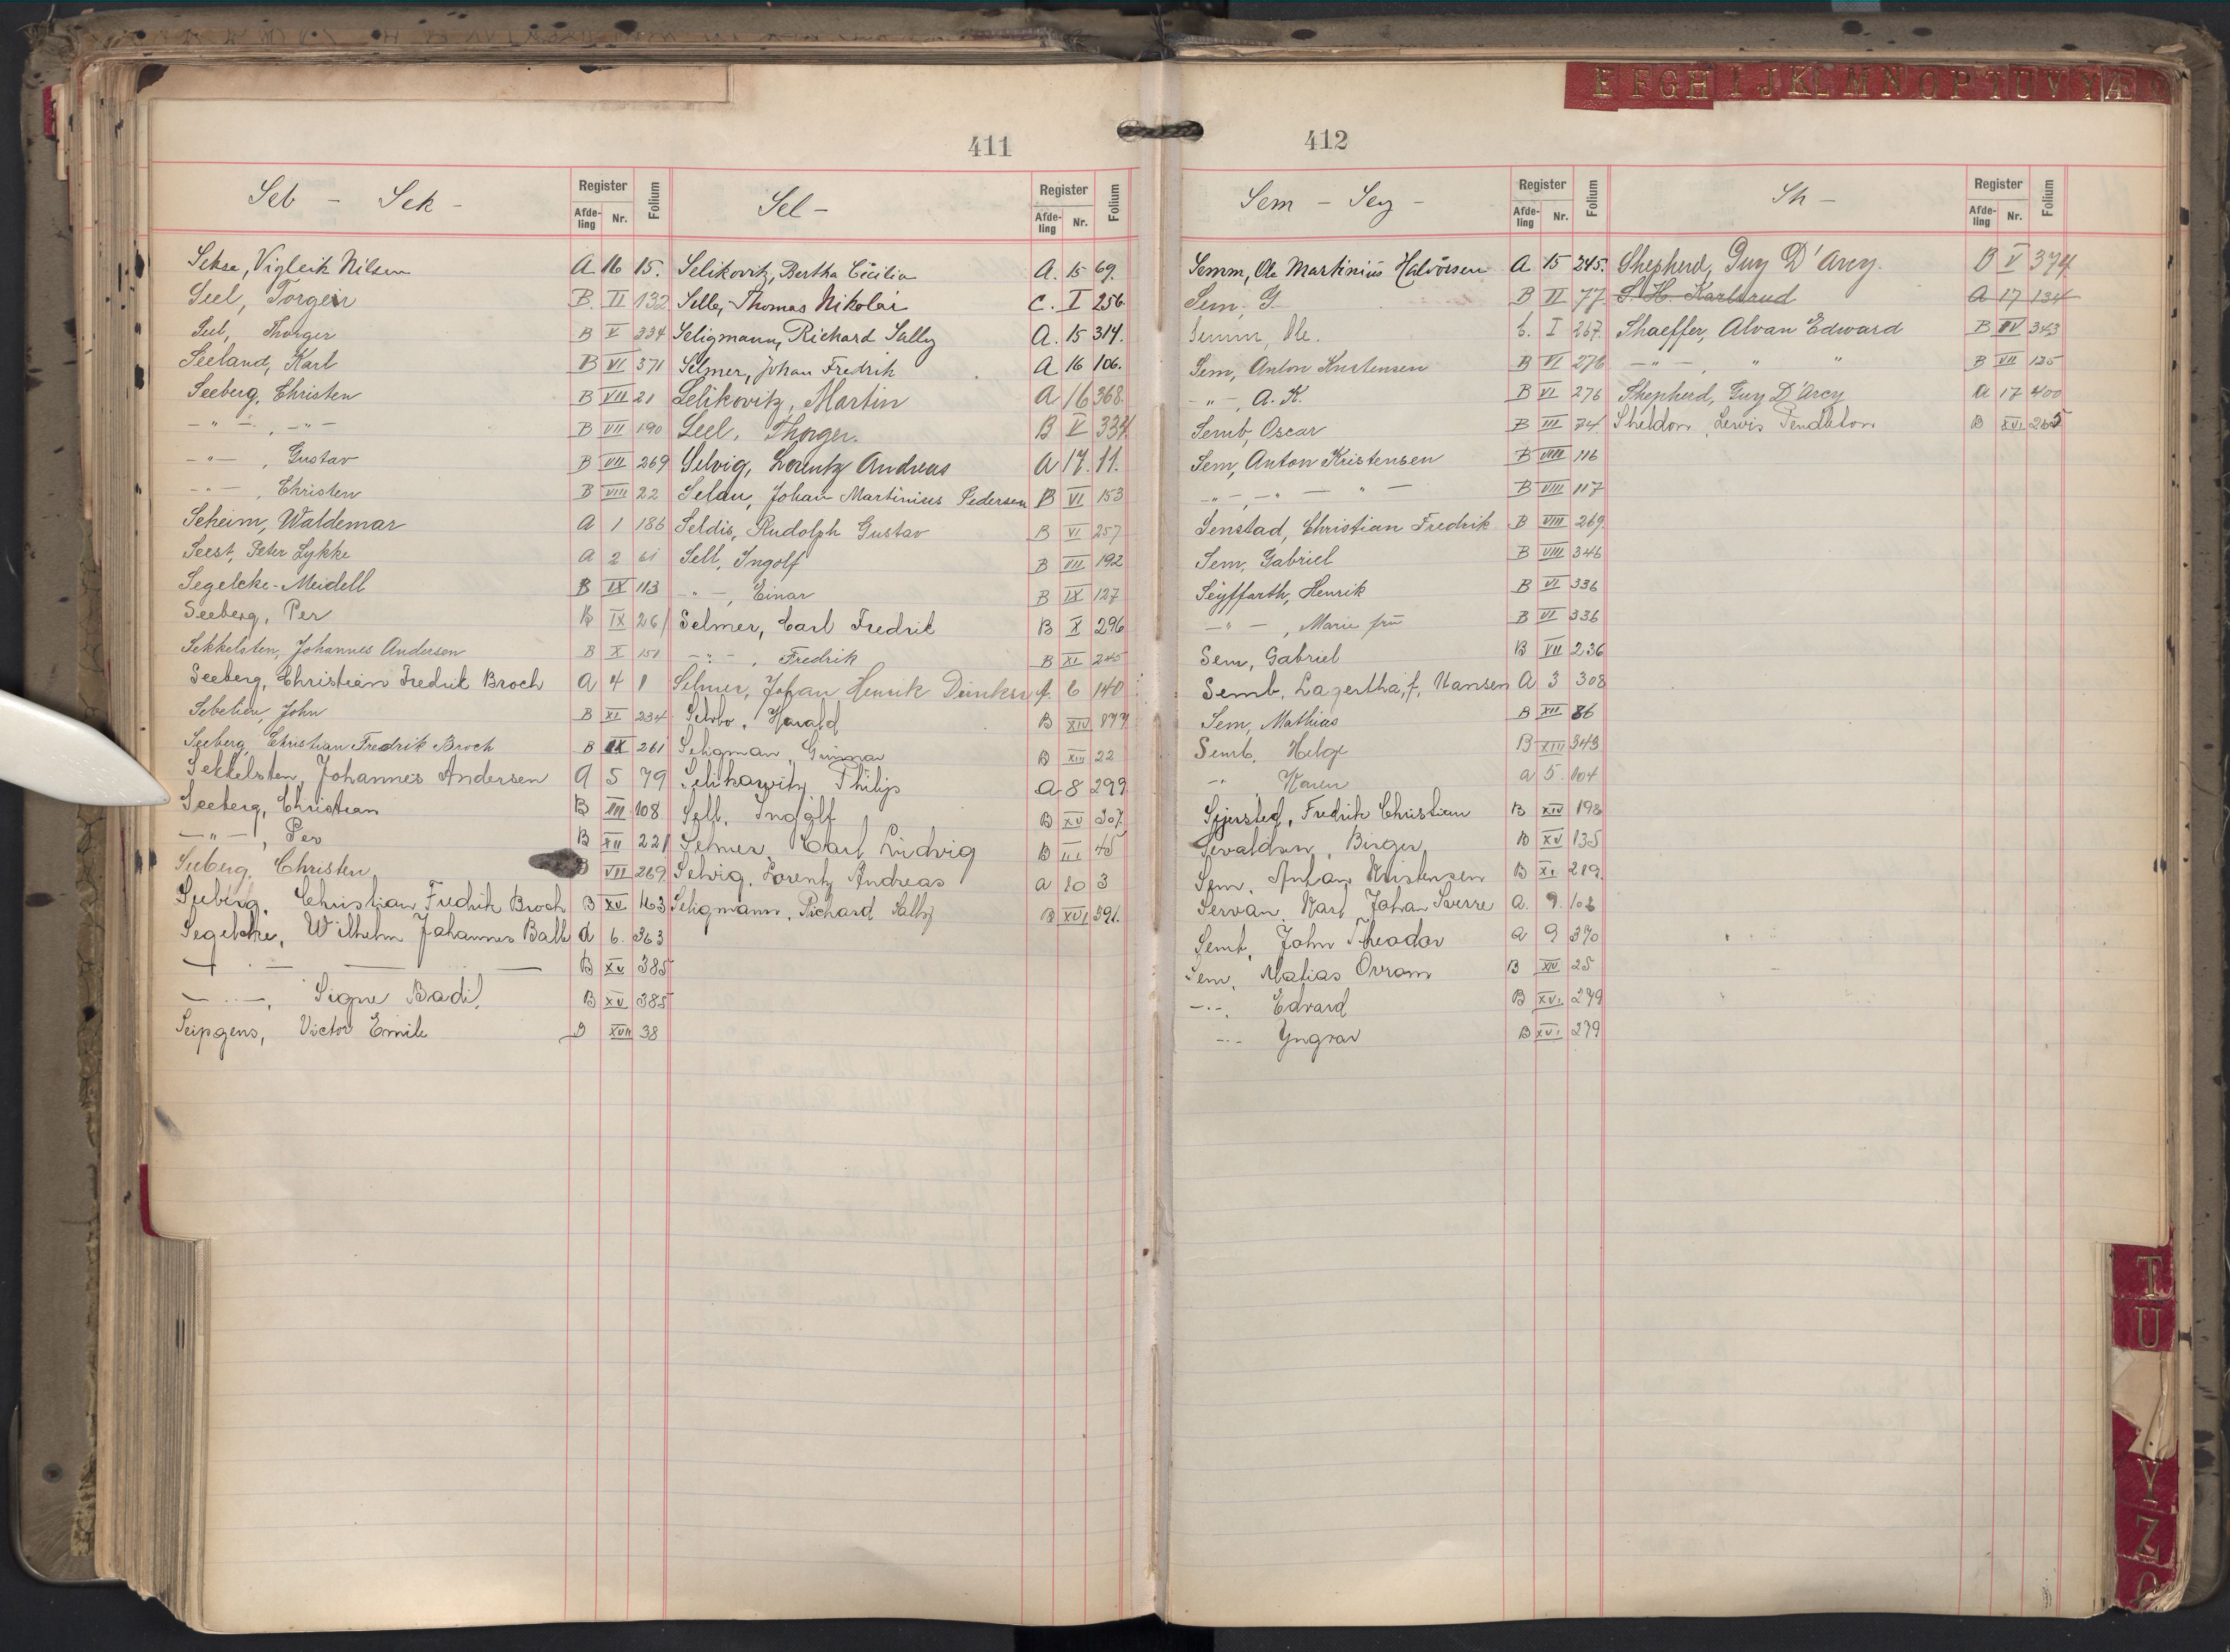 E F G H I J K L M N O P T U V Y Æ
411
Seb - Sek -
Register
Afde-ling Nr. Folium
Sekse, Vigleik Nilsen A 16 15.
Seel, Torgeir B. II 132
Sel, Thorger B V 334
Seeland, Karl B VI 371
Seeberg, Christen B VII 21
-"-, -"- B VII 190
-"-, Gustav B VII 269
-"-, Christen B VIII 22
Seheim, Waldemar A 1 186
Seest, Peter Lykke A 2 61
Segelcke-Meidell B IX 113
Seeberg, Per B IX 261
Sekkelsten, Johannes Andersen B X 151
Seeberg, Christian Fredrik Broch A 4 1
Sebelien, John B XI 234
Seeberg, Christian Fredrik Broch B IX 261
Sekkelsten, Johannes Andersen A 5 79
Seeberg, Christian B III 108
-"-, Per B XII 221
Seeberg, Christen B VII 269
Seeberg, Christian Fredrik Broch B XV 163
Segelcke, Wilhelm Johannes Ball A 6. 363
B XV 385
-"-, Signe Badil B XV 385
Seipgens, Victor Emile B XVII 38
Sel -
Register
Afde-ling Nr. Folium
Selikovitz, Bertha Cicilia A. 15 69.
Selle, Thomas Nikolai C. I 256
Seligmann, Richard Sally A. 15 314.
Selmer, Johan Fredrik A 16 106.
Selikovitz, Martin A 16 368.
Seel, Thorger. B V 334
Selvig, Lorentz Andreas A 17. 11.
Selau, Johan Martinius Pedersen B VI 153
Seldis, Rudolph Gustav B VI 257
Sell, Ingolf B VII 192
-"-, Einar B IX 127
Selmer, Carl Fredrik B X 296
-"-, Fredrik B XI 245
Selmer, Johan Henrik A 6 140
Selvbo, Harald B XIV
Seligman, Gunnar B XIII 22
Selikowitz, Philip A 8 299
Sell, Ingolf B XV 307
Selmer, Carl Ludvig B III 45
Selvig, Lorentz Andreas A 10 3
Seligmann, Richard Sally B XVI 391.
412
Sem - Sey -
Register
Afde-ling Nr. Folium
Semm, Ole Martinius Halvorsen A 15 245.
Sem, G. B II 77
Semm, Ole. C. I 267.
Sem, Anton Kristensen B VI 276
-"-, A. K. B VI 276
Semb, Oscar B III 74
Sem, Anton Kristensen B VIII 116
-"-, -"- -"- B VIII 117
Senstad, Christian Fredrik B VIII 269
Sem, Gabriel B VIII 346
Seyffarth, Henrik B VI 336
-"-, Marie fru B VI 336
Sem, Gabriel B VII 236
Semb, Lagertha, f. Hansen A 3 308
Sem, Mathias B XII 86
Semb, Helge B XIII 343
-"- Karen A 5. 104
Sejersted, Fredrik Christian B XIV 198
Sevaldsen, Birger B XV 135
Sem, Anton Kristensen B XI 219.
Servan, Karl Johan Sverre A. 9. 108
Semb, John Theodor A 9 370
Sem, Matias Ovram B XIV 25
-"-, Edvard B XVI. 279
-"- Yngvar B XVI. 279
Sh -
Register
Afde-ling Nr. Folium
Shepherd, Guy D'Arcy. B V 374
S. H. Karlsrud A 17 134
Shaeffer, Alvan Edward B IV 343
-"-, " " B VII 125
Shepherd, Guy D'Arcy A 17 400
Sheldon, Lewis Pendleton B XVI 265
T
U
Y
Z